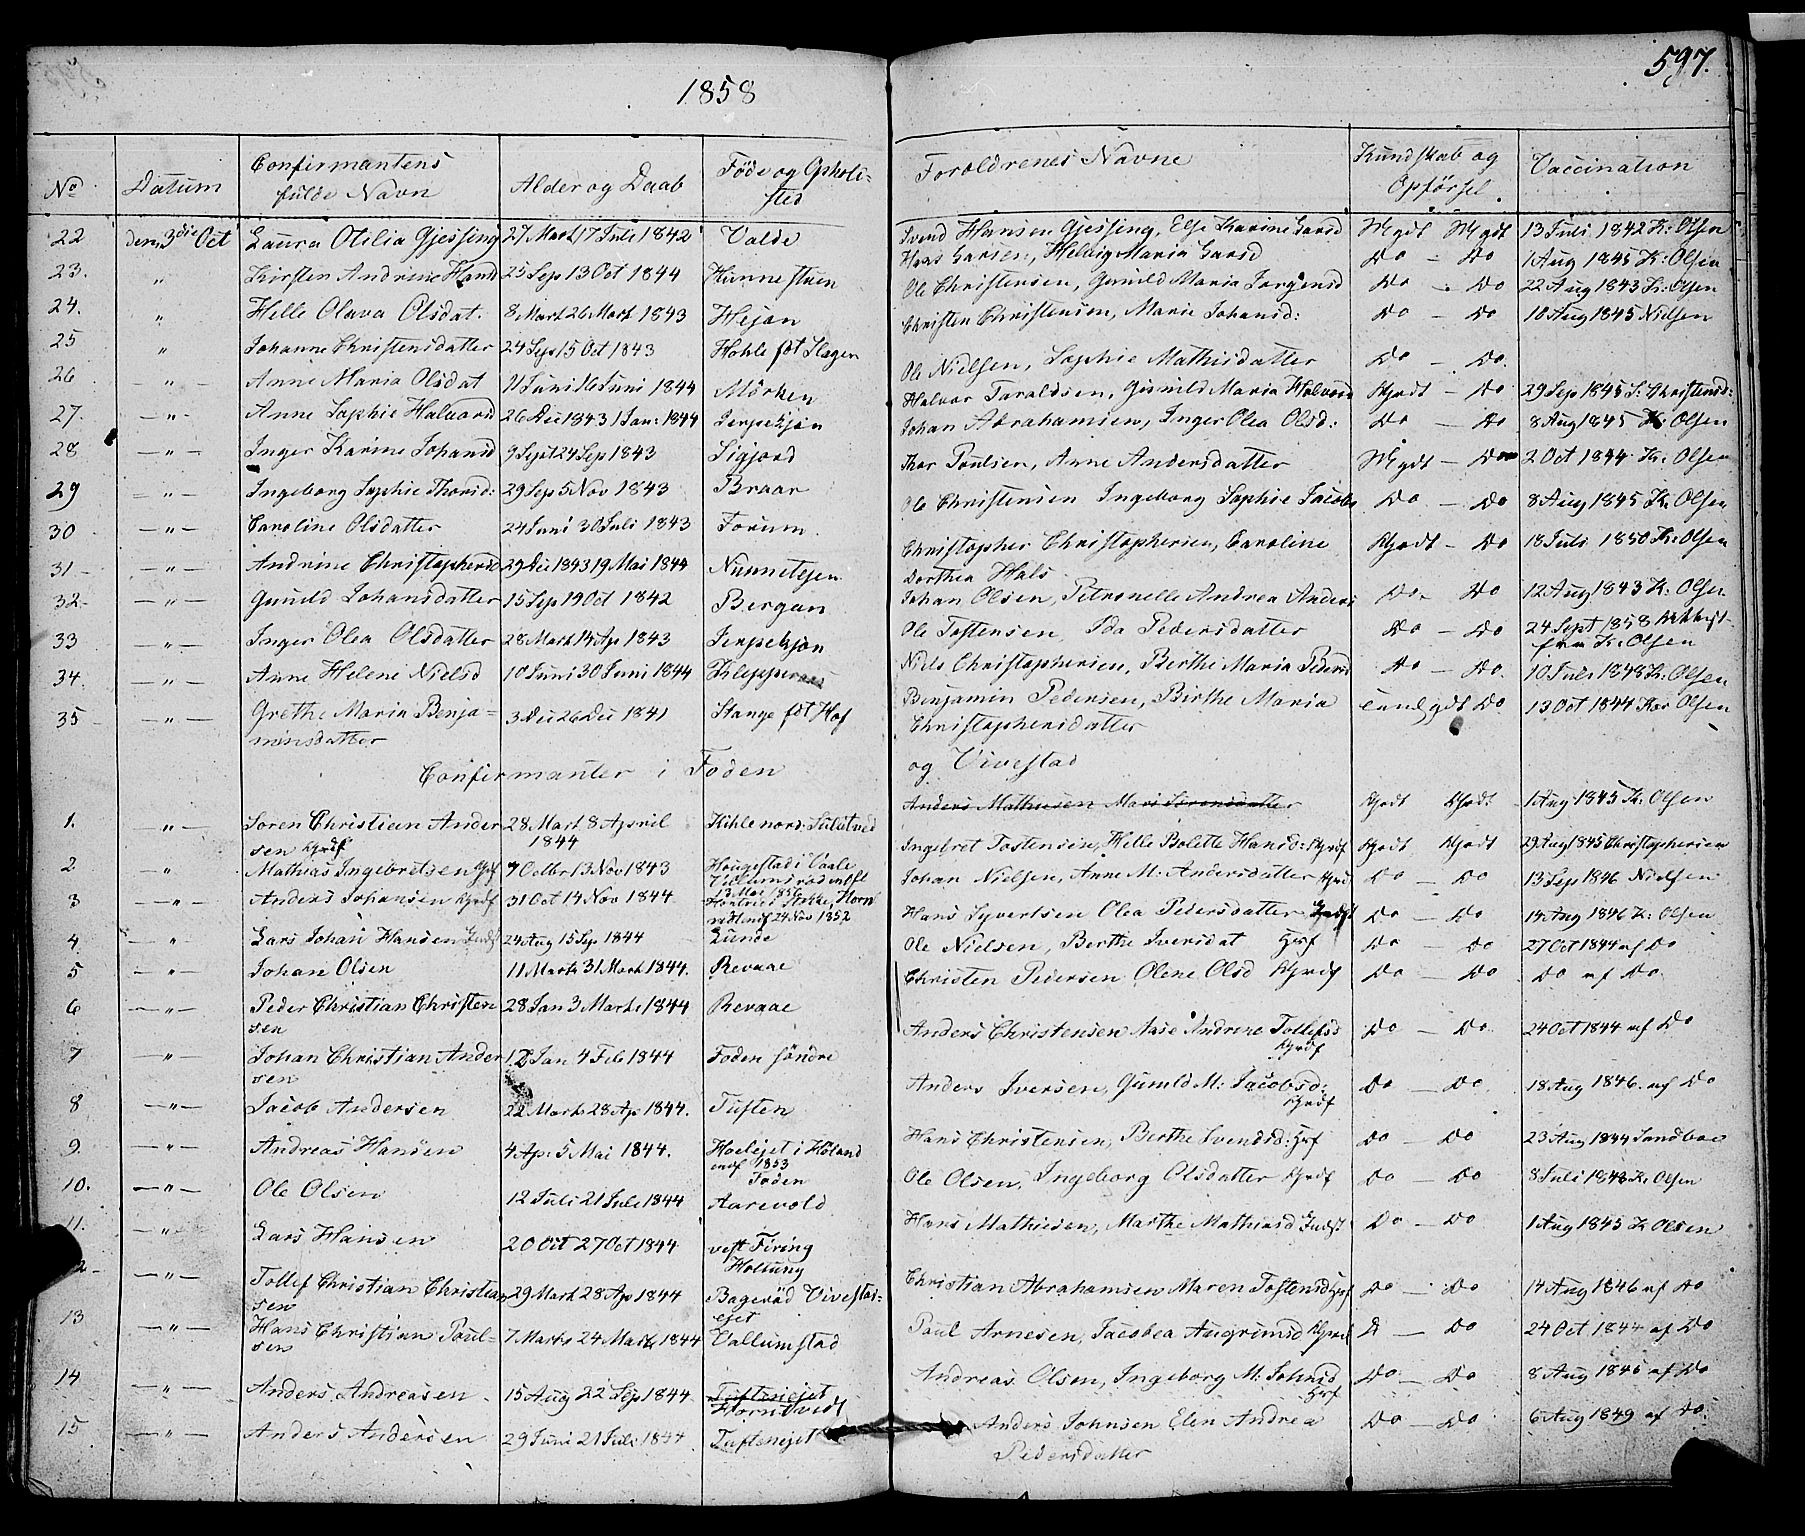 597.
1858
No Datum Confirmantens fulde Navn Alder og Daab Føde og Opholdsted Foroldrenes Navne Kundskab og Opførsel Vaccination
22 den 3die Oct Laura Otilia Gjessing 27 Mart 17 Juli 1842 Valde Svend Hansen Gjessing, Else Karine Larsd Mgdt Mgdt 13 Juli 1842 K: Olsen
23. " Kirsten Andrine Hansd 25 Sep 13 Oct 1844 Hunnestuen Hans Larsen, Helvig Maria Larsd Do - Do 1 Aug 1845 K: Olsen
24. " Helle Olava Olsdat. 8 Mart 26 Mart 1843 Hejan Ole Christensen, Gunild Maria Jørgensd Do - Do 22 Aug 1843 K: Olsen
25 " Johanne Christensdatter 24 Sep 15 Oct 1843 Hohle fdt Slagen Christen Christensen, Marie Johansd: Do - Do 10 Aug 1845 Nielsen
26 - " - Anne Maria Olsdat 11 Juni 16 Juni 1844 Mörken Ole Nielsen, Sophie Mathisdatter Do - Do.
27. - " - Anne Sophie Halvorsd 26 Dec 1843 1 Jan: 1844 Jerpekjøn Halvor Taraldsen, Gunild Maria Halvorsd Kgodt - Do 29 Sep 1845 S. Christensd:
28 - " - Inger Karine Johansd 9 Sept 24 Sep 1843 Sigjord Johan Abrahamsen, Inger Olea Olsd: Do - Do 8 Aug 1845 K Olsen
29 - " - Ingeborg Sophie Thorsd: 29 Sep 5 Nov 1843 Braar Thor Poulsen, Anne Andersdatter Mgdt - Do 2 Oct 1844 K: Olsen
30 - " - Caroline Olsdatter 24 Juni 30 Juli 1843 Forum Ole Christensen Ingeborg Sophie Jacobs Do - Do 8 Aug 1845 K Olsen
31 - " - Andrine Christophersd 29 Dec 1843 19 Mai 1844 Nunnetejen Christopher Christophersen, Caroline Dorthea Hals Kgodt - Do 18 Juli 1850 K: Olsen
32 - " - Gunild Johansdatter 15 Sep 19 Oct 1842 Bergan Johan Olsen, Petronelle Andrea Anders Do. Do 12 Aug 1843 K. Olsen
33 - " - Inger Olea Olsdatter 28 Mart 14 Ap 1843 Jerpekjøn Ole Toftensen, Ida Pedersdatter Do - Do 24 Sept 1858 fra K: Olsen
34. - " - Anne Helene Nielsd 10 Juni 30 Juni 1844 Klepperaas Niels Christophersen, Berthe Maria Pedersd Do - Do. 10 Juli 1848 K: Olsen
35 - " - Grethe Maria Benja=
minsdatter 3 Dec 26 Dec 1841 Stange fdt Hof Benjamin Pedersen, Birthe Maria Christophersdatter Do. 13 Oct 1844 Olsen
Confirmanter i Foden og Vivestad
1. - " - Soren Christian Andersen 28 Mart 8 April 1844 Kihle nord: Anders Mathisen Mari Sørensdatter Kgodt Kgodt 1 Aug 1845 K. Olsen
2 " Mathias Ingebretsen 7 Octbr 13 Nov 1843 Hougestad i Vaale Ingebret Tostensen, Helle Bolette Hansd: Kgodt Kgodt 29 Aug 1845 Christophersen
3 - " - Anders Johansen 31 Oct 14 Nov 1844 Johan Nielsen, Anne M: Andersdatter Do - Do 13 Sep 1846 Nielsen
4. " Lars Johan Hansen 24 Aug 15 Sep 1844 Lunde Hans Syvertsen Olea Pedersdatter Do - Do 14 Aug 1846 K: Olsen
5 - " - Johan Olsen 11 Marts 31 Mart 1844. Revaae Ole Nielsen, Berthe Iversdat Do - Do 27 Oct 1844 af Do
6 - " - Peder Christian Christensen 28 Jan 3 Marts 1844 Revaae Christen Pedersen Olene Olsd Do - Do Do af Do.
7 - " - Johan Christian Andersen 12 Jan 4 Feb 1844 Foden søndre Anders Christensen Aase Andrine Tollefsd Do - Do. 24 Oct 1844 af Do
8 - " - Jacob Andersen 22 Marts 28 Ap 1844. Tuften Anders Iversen, Gunild M: Jacobsd: Do - Do. 18 Aug 1846. af Do
9. - " - Andreas Hansen 4 Ap. 5 Mai 1844. Hoelejet i Høland 1853 Foden Hans Christensen, Berthe Svendsd: Do - Do 23 Aug 1844 Sandboe
10. - " - Ole Olsen 12 Juli 21 Juli 1844 Aarevold Ole Olsen, Ingeborg Olsdatter Do - Do 8 Juli 1848 K. Olsen
11. - " - Lars Hansen 20 Oct 27 Oct 1844 vest Firing Holtung Hans Mathisen, Marthe Mathiasd Do - Do 1 Aug 1845 K Olsen
12 - " - Tollef Christian Christiansen 29 Mart 28 Ap 1844 Bagerød Vivestad=
ejet Christian Abrahamsen Maren Tostensd Do - Do 14 Aug 1846 af Do
13 - " - Hans Christian Poul=
sen 7 Marts 24 Marts 1844 Vallumstad Poul Arnesen, Jacobea Angrimsd D - Do 24 Oct 1844 af Do
14 - " - Anders Andreasen 15 Aug 22 Sep 1844 Tuftenejet Horntvedt Andreas Olsen, Ingeborg M: Johnsd Do - Do 8 Aug 1845 af Do
15 - " - Anders Andersen 29 Juni 21 Juli 1844 Tuftenejet Anders Johnsen Elen Andrea Pedersdatter Do - Do 6 Aug 1849 af Do.